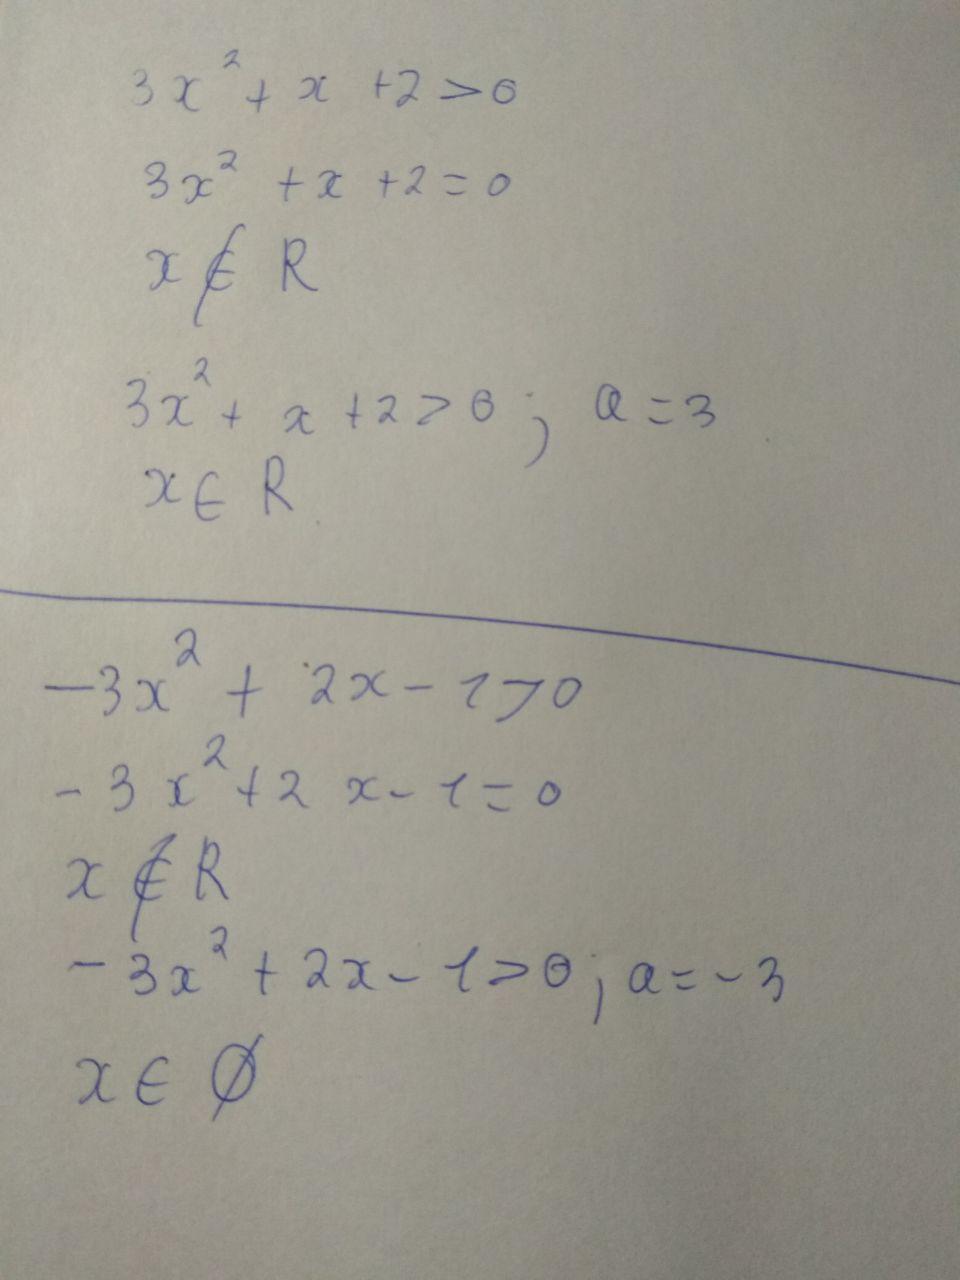 3x² + x + 2 > 0
3x² + x + 2 = 0
x ∉ R
3x² + x + 2 > 0 ; a = 3
x ∈ R
-3x² + 2x - 1 > 0
-3x² + 2x - 1 = 0
x ∉ R
-3x² + 2x - 1 > 0 ; a = -3
x ∈ Ø